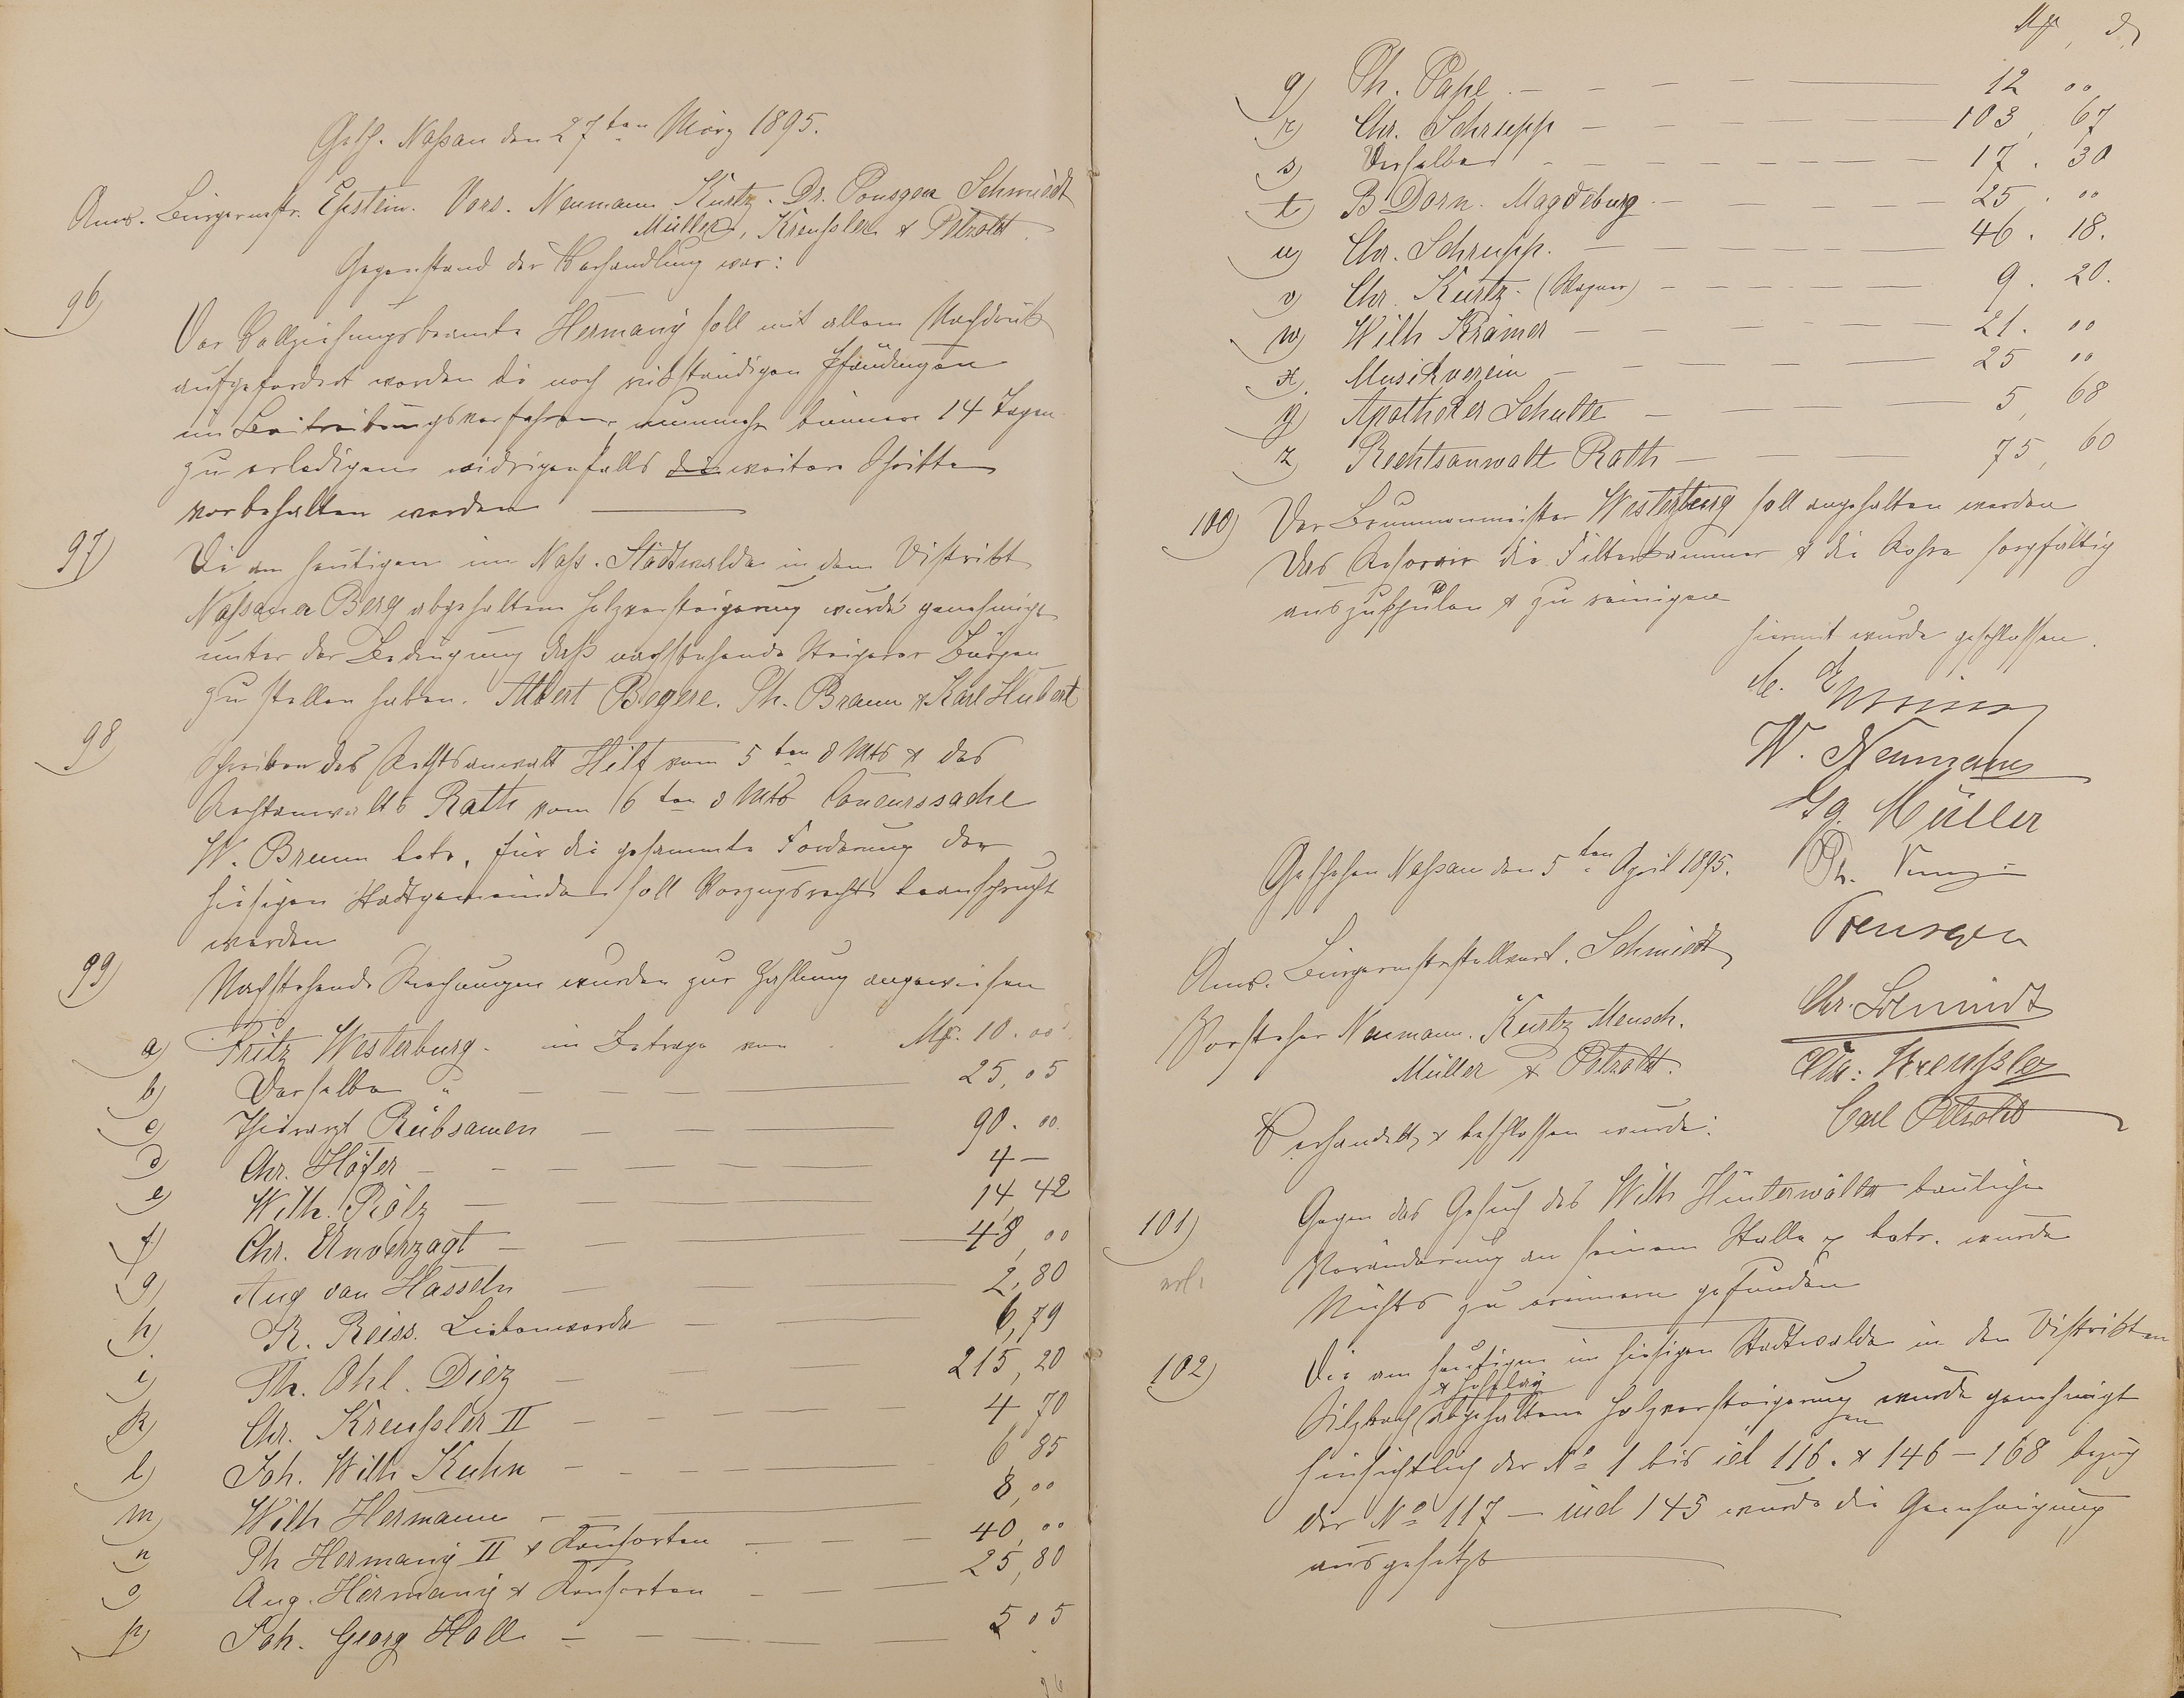 Gesch. Nassau den 27ten März 1895.
Anw. Bürgermstr. Epstein. Vors. Neumann Kurtz. Dr. Poensgen Schmidt
Müller, Kreußler & Petroth
Gegenstand der Verhandlung war:
96)
Der Vollziehungsbeamte Hermany soll mit allem Nachdruck
aufgefordert werden die noch rückständigen Pfändungen
im Beitreibungsverfahren nunmehr binnen 14 Tagen
zu erledigen widrigenfalls die weitere Schritte
vorbehalten werden
97)
Die am heutigen im Nass. Stadtwalde in dem Distrikt
Nassauer Berg abgehaltene Holzversteigerung wurde genehmigt
unter der Bedingung daß nachstehende Steigerer Bürgen
zu stellen haben. Albert Begere. Ph. Braun & Karl Hubert
98)
Schreiben des Rechtsanwalt Hilf vom 5ten d Mts & des
Rechtanwalts Rath vom 16ten d Mts Concurssache
W. Bruun betr. für die gesammte Forderung der
hiesigen Stadtgemeinde soll Vorzugsrecht beansprucht
werden
99)
Nachstehende Rechnungen wurden zur Zahlung angewiesen
a) Fritz Westerburg. im Betrage von Mk. 10.00
b) Derselbe " 25,05
c) Thierarzt Rübsamen 90.00
d) Chr. Höfer 4 —
e) Wilh. Pölz 14,42
f) Chr. Unverzagt 48,00
g) Aug van Hasseln 2,80
h) R. Reiss. Liebenwerda 6,79
i) Th. Ohl. Diez 215,20
k) Chr. Kreußler II 4,70
l) Joh. Wilh Kuhn 6 85
m) Wilh Hermann 8,00
n) Ph Hermany II & Konsorten 40,00
o) Aug. Hermany & Konsorten 25,80
p) Joh. Georg Holl 5 05
Mk d
q) Ph. Pape 12 00
r) Chr. Schrupp 103,67
s) Derselbe 17.30
t) B Dorn. Magdeburg 25.00
u) Chr. Schrupp. 46.18.
v) Chr. Kurtz. (Wagner) 9.20.
w) Wilh Krämer 21.00
x) Musikverein 25 00
y) Apotheker Schulte 5,68
z) Rechtsanwalt Rath 75,60
100) Der Brunnenmeister Westerburg soll angehalten werden
das Reservoir die Filterkammer & die Rohre sorgfältig
auszuspülen & zu reinigen
hiermit wurde geschlossen.
W. Neumann
Gg. Müller
Geschehen Nassau den 5ten April 1895.
Poensgen
Anw. Bürgermstrstellvert. Schmidt
Chr. Schmidt
Vorsteher Neumann. Kurtz Mensch.
Chr: Kreußler
Müller & Petroth.
Carl Petroth
Verhandelt & beschlossen wurde:
101) Gegen das Gesuch des Wilh Hinterwälder bauliche
Veränderung an seinem Stalle betr. wurde
Nichts zu erinnern gefunden
102) Die am heutigen im hiesigen Stadtwalde in den Distrikten
abgehaltene Holzversteigerung wurde genehmigt
hinsichtlich der No 1 bis icl 116. & 146 – 168 bezug
der No 117 – incl 145 wurde die Genehmigung
ausgesetzt